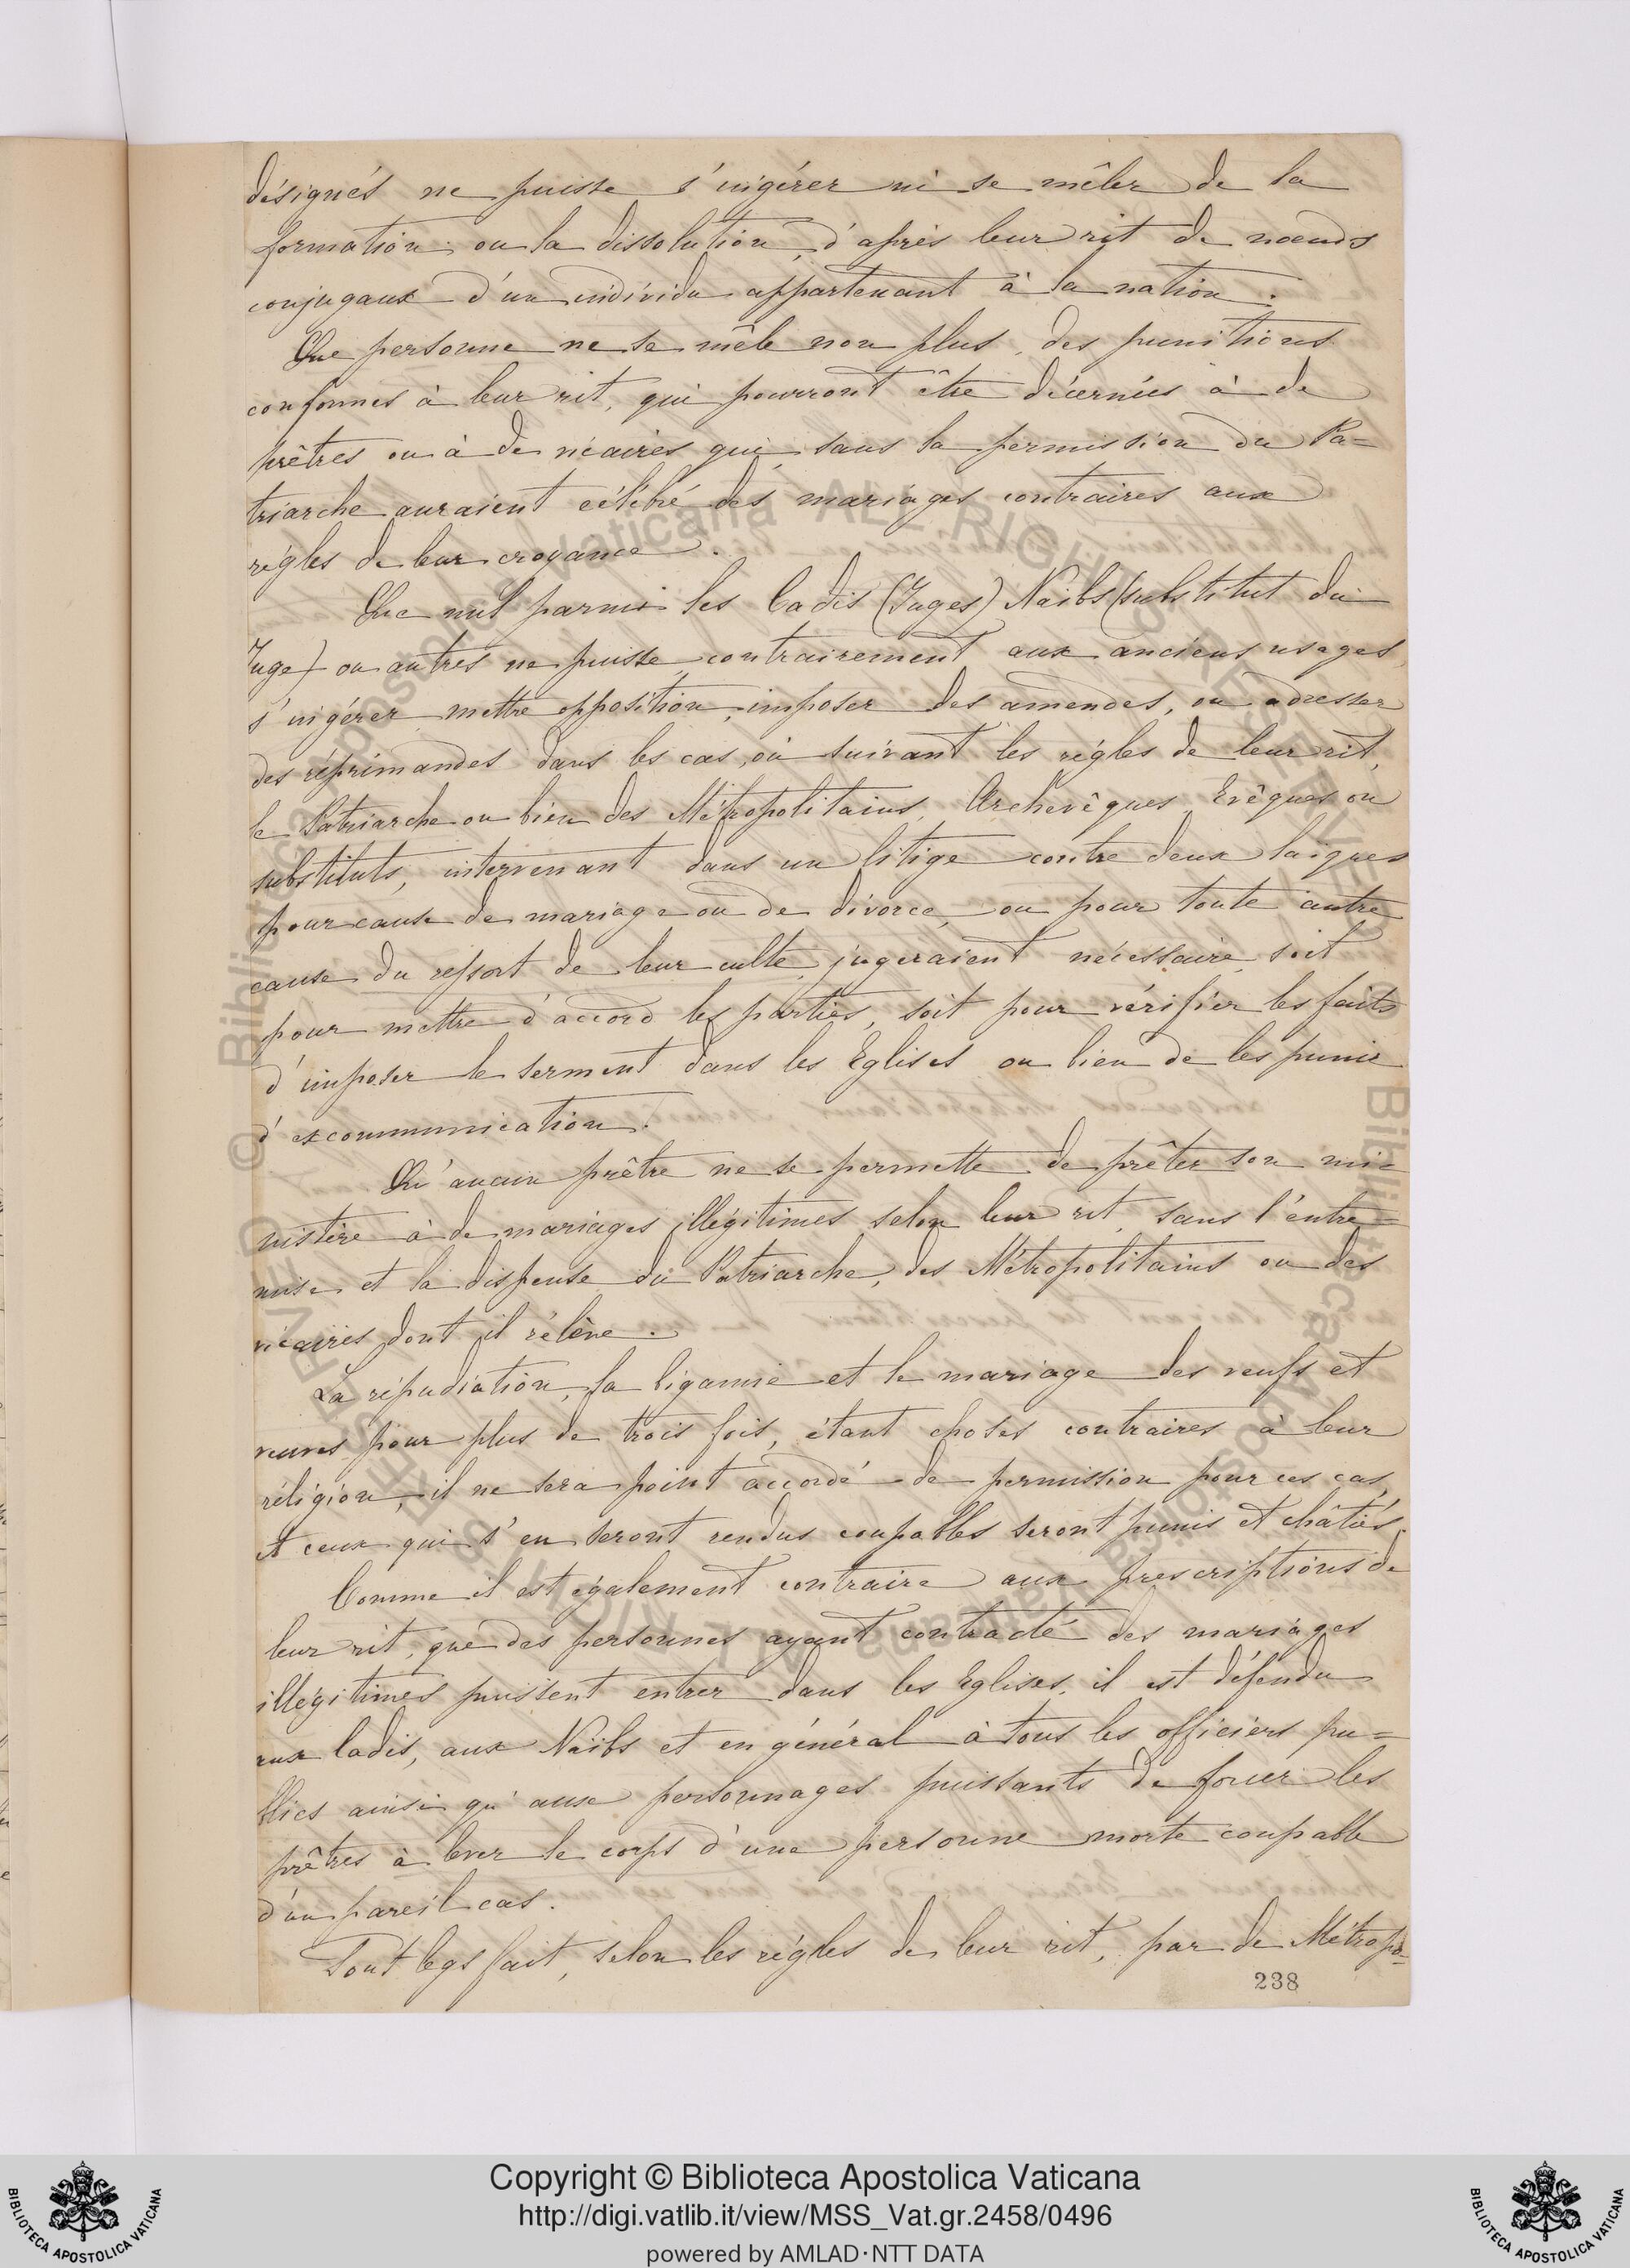 désignés ne puisse s'ingérer ni se mêler de la
formation ou la dissolution, d'après leur rit de nœuds
conjugaux d'un individu appartenant à la nation.
Que personne ne se mêle non plus, des punitions
conformes à leur rit, qui pourront être décernées à de
prêtres ou à de vicaires qui, sans la permission du Pa=
triarche auraient célébré des mariages contraires aux
règles de leur croyance.
Que nul parmi les Cadis (Juges) Naïbs (substitut du
Juge) ou autres ne puisse, contrairement aux anciens usages,
s'ingérer mettre opposition, imposer des amendes, ou adresser
des réprimandes dans les cas, où suivant les régles de leur rit,
le Patriarche ou bien des Métropolitains, Archevêques, Evêques ou
substituts, intervenant dans un litige contre deux laïques
pour cause de mariage ou de divorce, ou pour toute autre
cause du ressort de leur culte, jugeraient nécessaire, soit
pour mettre d'accord les parties, soit pour vérifier les faits
d'imposer le serment dans les Eglises ou bien de les punir
d'excommunication.
Qu'aucun prêtre ne se permette de prêter son mi=
nistère à de mariages illégitimes, selon leur rit, sans l'entre=
mise et la dispense du Patriarche, des Métropolitains ou des
vicaires dont il rélève.
La répudiation, la bigamie et le mariage des veufs et
veuves pour plus de trois fois, étant choses contraires à leur
réligion, il ne sera point accordé de permission pour ces cas,
et ceux qui s'en seront rendus coupables seront punis et châtiés.
Comme il est également contraire aux prescriptions de
leur rit, que des personnes ayant contracté des mariages
illégitimes puissent entrer dans les Eglises, il est défendu
aux Cadis, aux Naïbs et en général à tous les officiers pu=
blics ainsi qu'aux personnages puissants de forcer les
prêtres à lever le corps d'une personne morte coupable
d'un pareil cas.
Tout legs fait, selon les régles de leur rit, par de Métropo=
238
© Biblioteca Apostolica Vaticana ALL RIGHTS RESERVED
© Biblioteca Apostolica Vaticana ALL RIGHTS RESERVED
Copyright © Biblioteca Apostolica Vaticana
http://digi.vatlib.it/view/MSS_Vat.gr.2458/0496
powered by AMLAD·NTT DATA
BIBLIOTECA APOSTOLICA VATICANA
BIBLIOTECA APOSTOLICA VATICANA